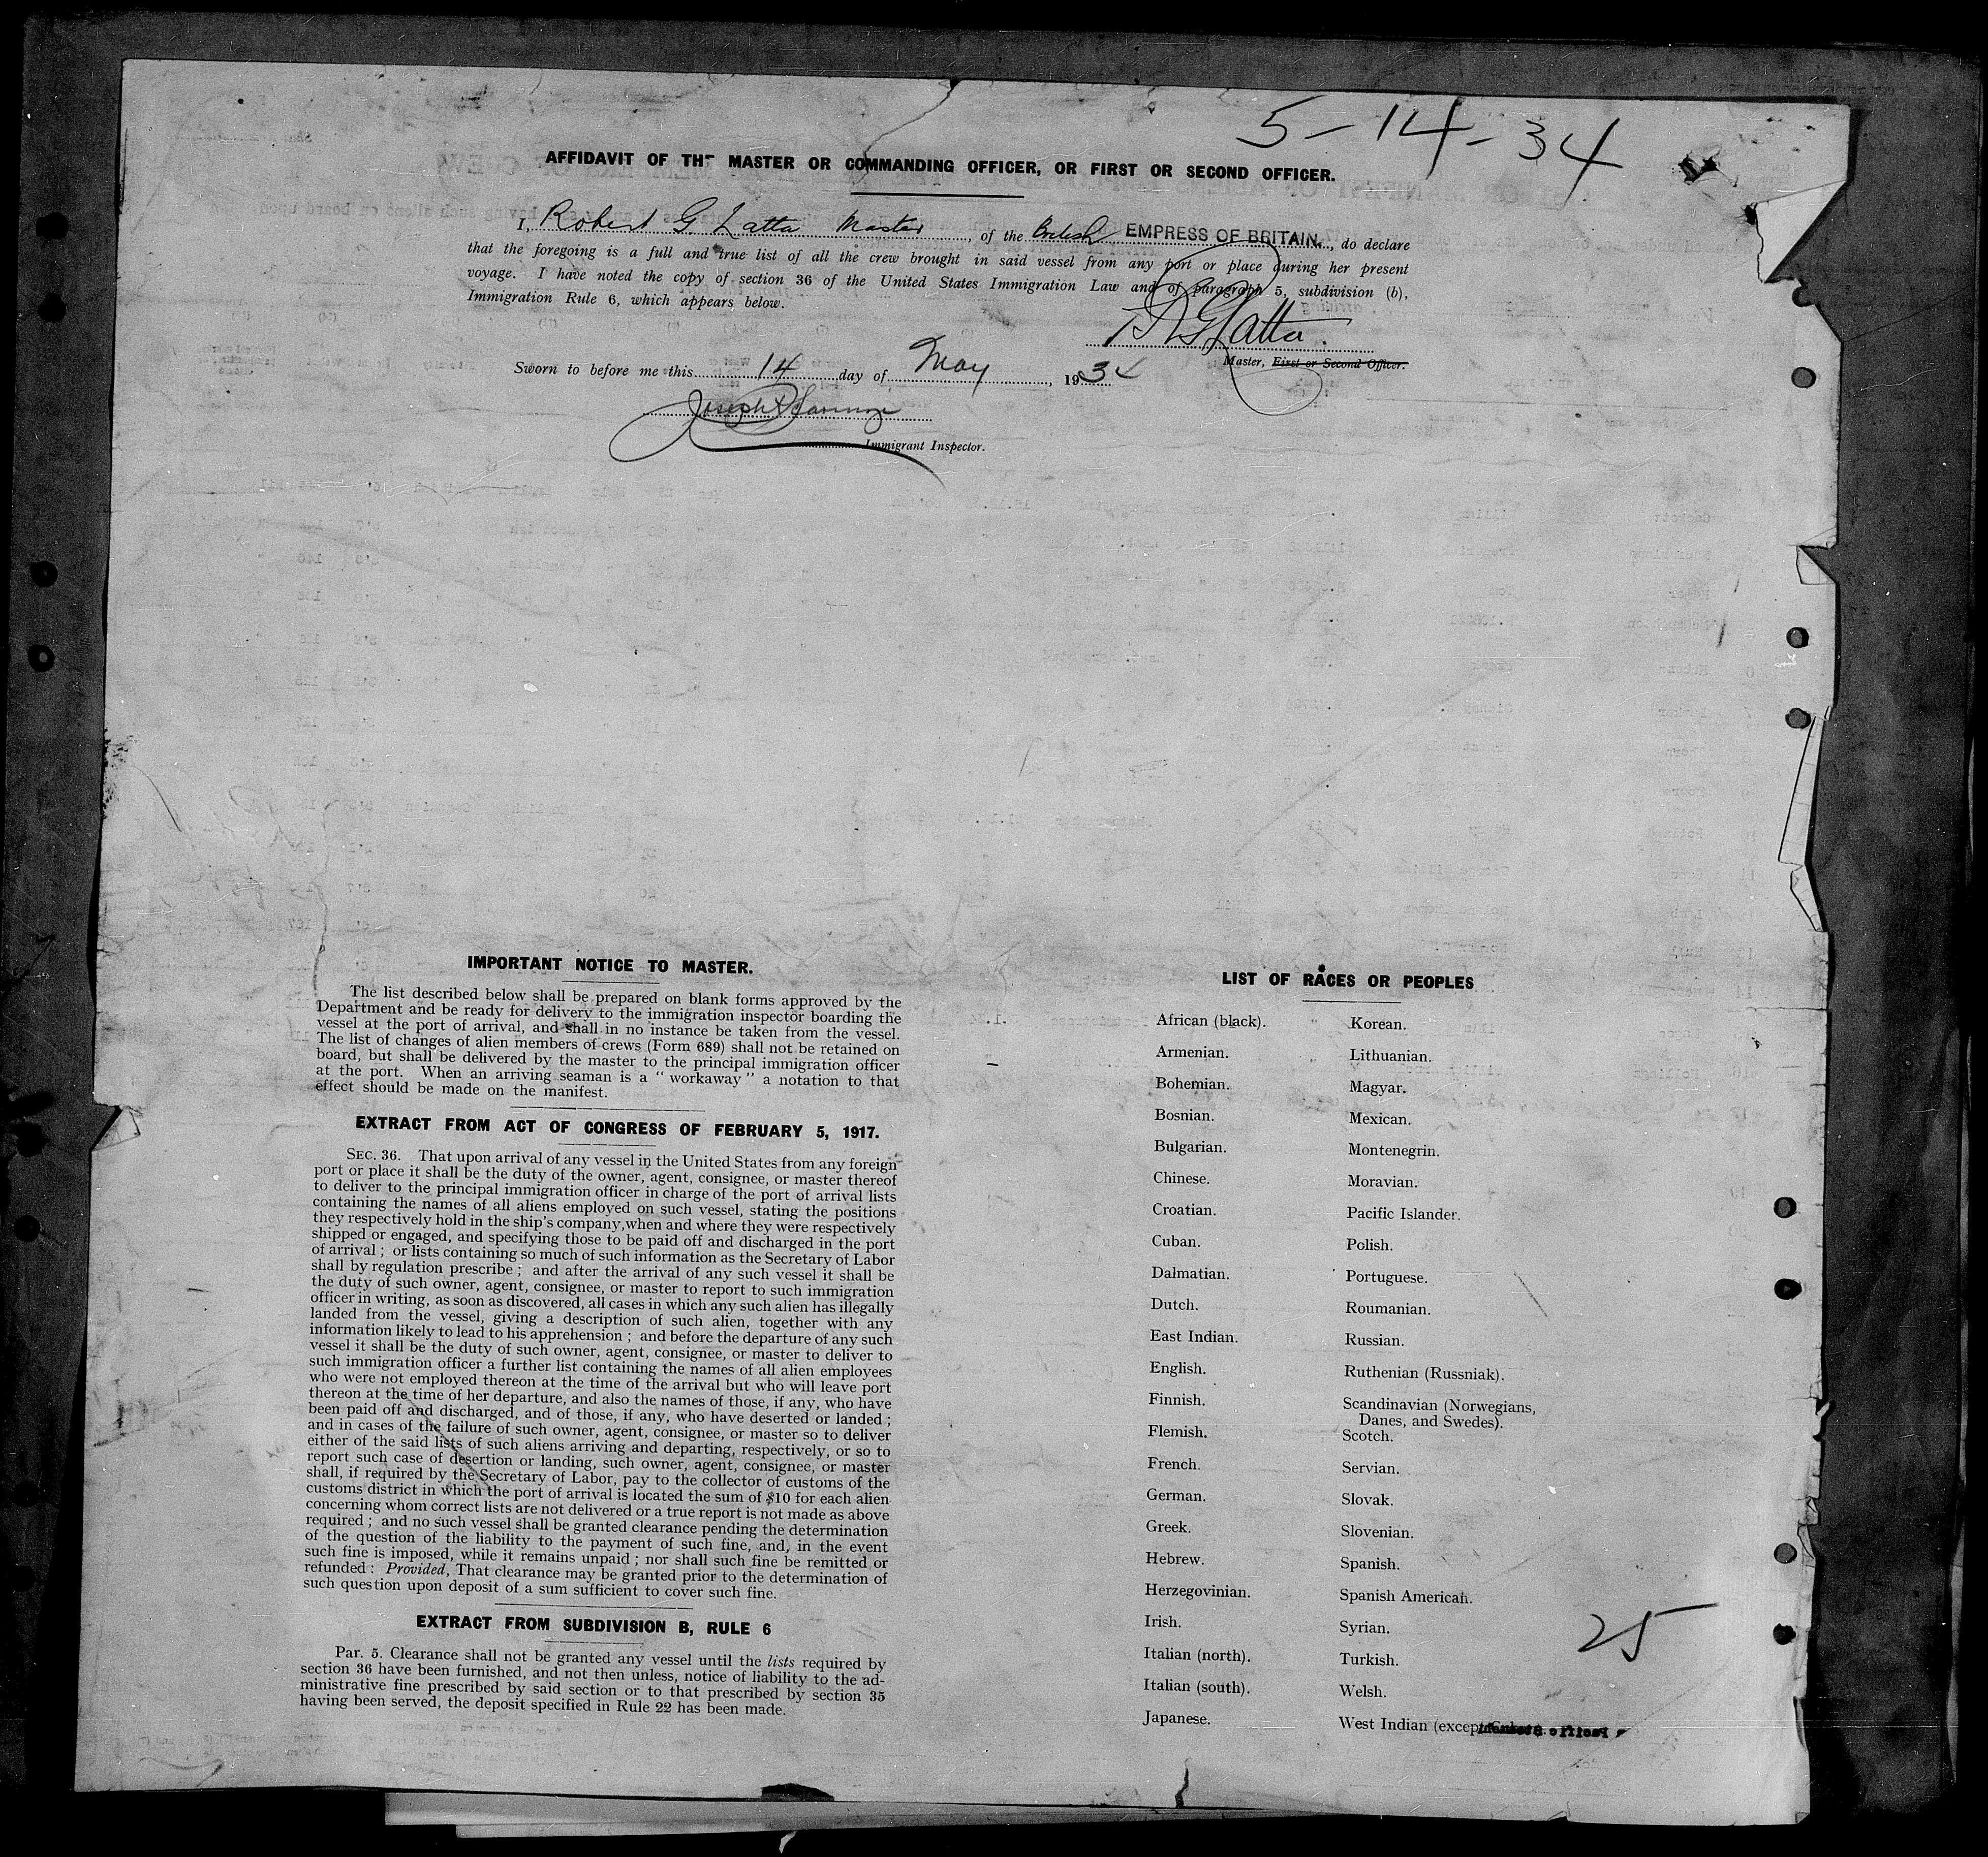 5-14-34
AFFIDAVIT OF THE MASTER OR COMMANDING OFFICER, OR FIRST OR SECOND OFFICER.
I, Robert G Latta Master, of the British EMPRESS OF BRITAIN, do declare
that the foregoing is a full and true list of all the crew brought in said vessel from any port or place during her present
voyage. I have noted the copy of section 36 of the United States Immigration Law and of paragraph 5, subdivision (b),
Immigration Rule 6, which appears below.
R G Latta.
Master, First or Second Officer.
Sworn to before me this 14 day of May, 1934
Joseph
Immigrant Inspector.
IMPORTANT NOTICE TO MASTER.
The list described below shall be prepared on blank forms approved by the
Department and be ready for delivery to the immigration inspector boarding the
vessel at the port of arrival, and shall in no instance be taken from the vessel.
The list of changes of alien members of crews (Form 689) shall not be retained on
board, but shall be delivered by the master to the principal immigration officer
at the port. When an arriving seaman is a "workaway" a notation to that
effect should be made on the manifest.
EXTRACT FROM ACT OF CONGRESS OF FEBRUARY 5, 1917.
SEC. 36. That upon arrival of any vessel in the United States from any foreign
port or place it shall be the duty of the owner, agent, consignee, or master thereof
to deliver to the principal immigration officer in charge of the port of arrival lists
containing the names of all aliens employed on such vessel, stating the positions
they respectively hold in the ship's company, when and where they were respectively
shipped or engaged, and specifying those to be paid off and discharged in the port
of arrival; or lists containing so much of such information as the Secretary of Labor
shall by regulation prescribe; and after the arrival of any such vessel it shall be
the duty of such owner, agent, consignee, or master to report to such immigration
officer in writing, as soon as discovered, all cases in which any such alien has illegally
landed from the vessel, giving a description of such alien, together with any
information likely to lead to his apprehension; and before the departure of any such
vessel it shall be the duty of such owner, agent, consignee, or master to deliver to
such immigration officer a further list containing the names of all alien employees
who were not employed thereon at the time of the arrival but who will leave port
thereon at the time of her departure, and also the names of those, if any, who have
been paid off and discharged, and of those, if any, who have deserted or landed;
and in cases of the failure of such owner, agent, consignee, or master so to deliver
either of the said lists of such aliens arriving and departing, respectively, or so to
report such case of desertion or landing, such owner, agent, consignee, or master
shall, if required by the Secretary of Labor, pay to the collector of customs of the
customs district in which the port of arrival is located the sum of $10 for each alien
concerning whom correct lists are not delivered or a true report is not made as above
required; and no such vessel shall be granted clearance pending the determination
of the question of the liability to the payment of such fine, and, in the event
such fine is imposed, while it remains unpaid; nor shall such fine be remitted or
refunded: Provided, That clearance may be granted prior to the determination of
such question upon deposit of a sum sufficient to cover such fine.
EXTRACT FROM SUBDIVISION B, RULE 6
Par. 5. Clearance shall not be granted any vessel until the lists required by
section 36 have been furnished, and not then unless, notice of liability to the ad-
ministrative fine prescribed by said section or to that prescribed by section 35
having been served, the deposit specified in Rule 22 has been made.
LIST OF RACES OR PEOPLES
African (black).
Armenian.
Bohemian.
Bosnian.
Bulgarian.
Chinese.
Croatian.
Cuban.
Dalmatian.
Dutch.
East Indian.
English.
Finnish.
Flemish.
French.
German.
Greek.
Hebrew.
Herzegovinian.
Irish.
Italian (north).
Italian (south).
Japanese.
Korean.
Lithuanian.
Magyar.
Mexican.
Montenegrin.
Moravian.
Pacific Islander.
Polish.
Portuguese.
Roumanian.
Russian.
Ruthenian (Russniak).
Scandinavian (Norwegians,
Danes, and Swedes).
Scotch.
Servian.
Slovak.
Slovenian.
Spanish.
Spanish American.
Syrian.
Turkish.
Welsh.
West Indian (except
25